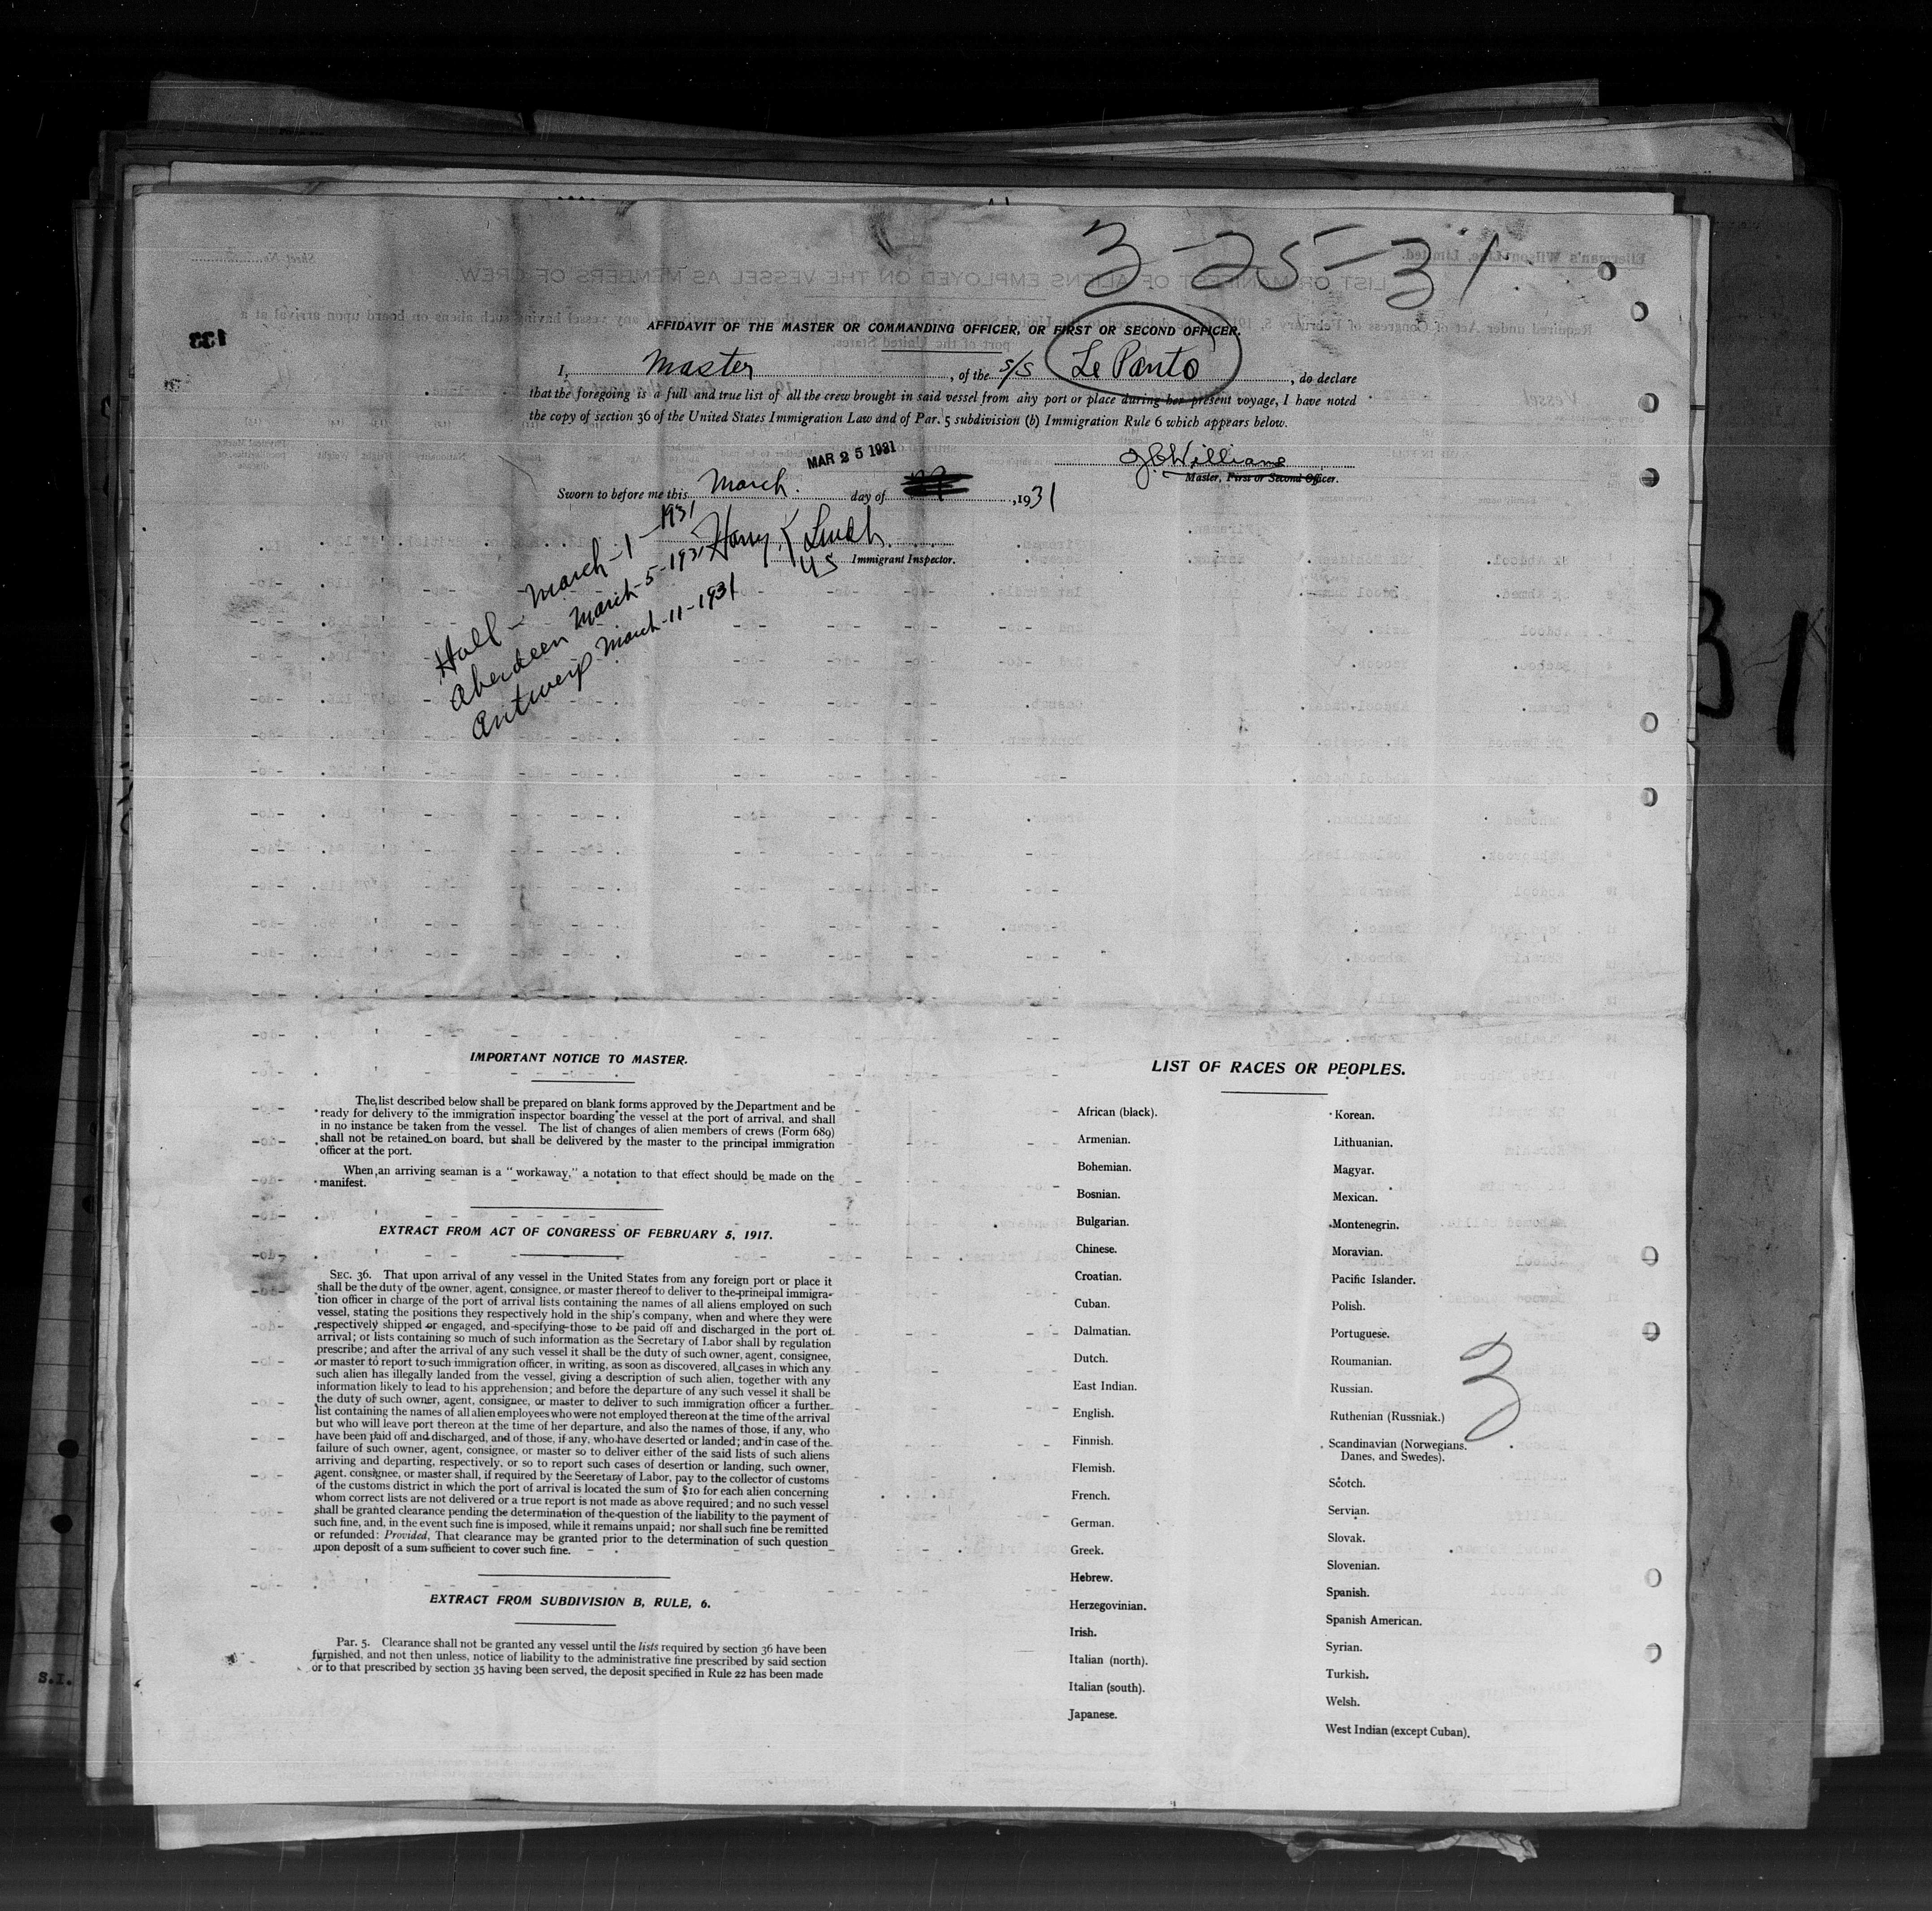 3-25-31
AFFIDAVIT OF THE MASTER OR COMMANDING OFFICER, OR FIRST OR SECOND OFFICER.
I, Master, of the S/S Le Panto, do declare
that the foregoing is a full and true list of all the crew brought in said vessel from any port or place during her present voyage, I have noted
the copy of section 36 of the United States Immigration Law and of Par. 5 subdivision (b) Immigration Rule 6 which appears below.
MAR 25 1931
Williams
Master, First or Second Officer.
Sworn to before me this March. day of , 1931
Harry K
US Immigrant Inspector.
Hull - March-1-1931
Aberdeen March-5-1931
Antwerp March-11-1931
IMPORTANT NOTICE TO MASTER.
The list described below shall be prepared on blank forms approved by the Department and be
ready for delivery to the immigration inspector boarding the vessel at the port of arrival, and shall
in no instance be taken from the vessel. The list of changes of alien members of crews (Form 689)
shall not be retained on board, but shall be delivered by the master to the principal immigration
officer at the port.
When an arriving seaman is a "workaway," a notation to that effect should be made on the
manifest.
EXTRACT FROM ACT OF CONGRESS OF FEBRUARY 5, 1917.
SEC. 36. That upon arrival of any vessel in the United States from any foreign port or place it
shall be the duty of the owner, agent, consignee, or master thereof to deliver to the principal immigra-
tion officer in charge of the port of arrival lists containing the names of all aliens employed on such
vessel, stating the positions they respectively hold in the ship's company, when and where they were
respectively shipped or engaged, and specifying those to be paid off and discharged in the port of
arrival; or lists containing so much of such information as the Secretary of Labor shall by regulation
prescribe; and after the arrival of any such vessel it shall be the duty of such owner, agent, consignee,
or master to report to such immigration officer, in writing, as soon as discovered, all cases in which any
such alien has illegally landed from the vessel, giving a description of such alien, together with any
information likely to lead to his apprehension; and before the departure of any such vessel it shall be
the duty of such owner, agent, consignee, or master to deliver to such immigration officer a further
list containing the names of all alien employees who were not employed thereon at the time of the arrival
but who will leave port thereon at the time of her departure, and also the names of those, if any, who
have been paid off and discharged, and of those, if any, who have deserted or landed; and in case of the
failure of such owner, agent, consignee, or master so to deliver either of the said lists of such aliens
arriving and departing, respectively, or so to report such cases of desertion or landing, such owner,
agent, consignee, or master shall, if required by the Secretary of Labor, pay to the collector of customs
of the customs district in which the port of arrival is located the sum of $10 for each alien concerning
whom correct lists are not delivered or a true report is not made as above required; and no such vessel
shall be granted clearance pending the determination of the question of the liability to the payment of
such fine, and, in the event such fine is imposed, while it remains unpaid; nor shall such fine be remitted
or refunded: Provided, That clearance may be granted prior to the determination of such question
upon deposit of a sum sufficient to cover such fine.
EXTRACT FROM SUBDIVISION B, RULE, 6.
Par. 5. Clearance shall not be granted any vessel until the lists required by section 36 have been
furnished, and not then unless, notice of liability to the administrative fine prescribed by said section
or to that prescribed by section 35 having been served, the deposit specified in Rule 22 has been made
LIST OF RACES OR PEOPLES.
African (black).
Armenian.
Bohemian.
Bosnian.
Bulgarian.
Chinese.
Croatian.
Cuban.
Dalmatian.
Dutch.
East Indian.
English.
Finnish.
Flemish.
French.
German.
Greek.
Hebrew.
Herzegovinian.
Irish.
Italian (north).
Italian (south).
Japanese.
Korean.
Lithuanian.
Magyar.
Mexican.
Montenegrin.
Moravian.
Pacific Islander.
Polish.
Portuguese.
Roumanian.
Russian.
Ruthenian (Russniak.)
Scandinavian (Norwegians.
Danes, and Swedes).
Scotch.
Servian.
Slovak.
Slovenian.
Spanish.
Spanish American.
Syrian.
Turkish.
Welsh.
West Indian (except Cuban).
3
31
S.I.